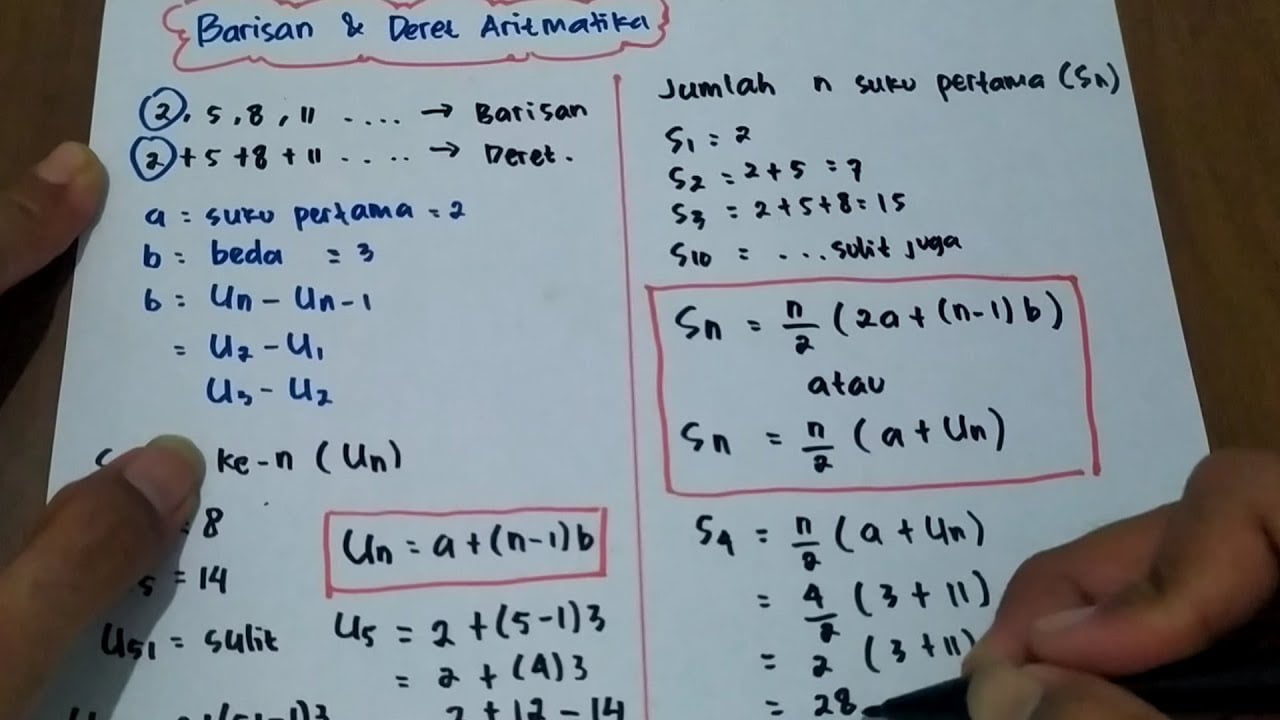 Barisan & Deret Aritmatika
2, 5, 8, 11 .... → Barisan
2 + 5 + 8 + 11 .... → Deret.
a = suku pertama = 2
b = beda = 3
b = Un - Un-1
= U2 - U1
U3 - U2
ke-n (Un)
= 8
= 14
U51 = sulit
Un = a + (n-1)b
U5 = 2 + (5-1)3
= 2 + (4)3
2 + 12 - 14
Jumlah n suku pertama (Sn)
S1 = 2
S2 = 2 + 5 = 7
S3 = 2 + 5 + 8 = 15
S10 = ... sulit juga
Sn = n/2 (2a + (n-1)b)
atau
Sn = n/2 (a + Un)
S4 = n/2 (a + Un)
= 4/2 (3 + 11)
= 2 (3 + 11)
= 28